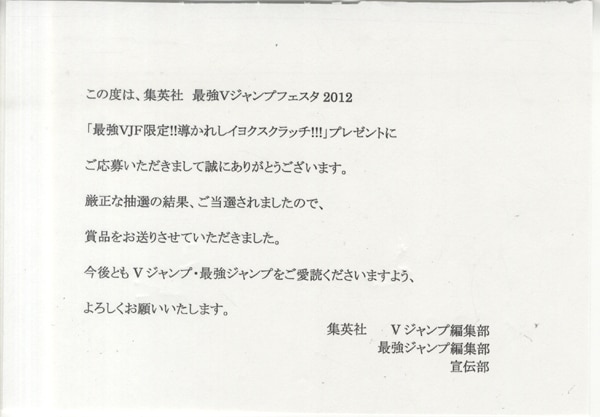 この度は、集英社　最強Vジャンプフェスタ 2012
「最強VJF限定!!導かれしイヨクスクラッチ!!!」プレゼントに
ご応募いただきまして誠にありがとうございます。
厳正な抽選の結果、ご当選されましたので、
賞品をお送りさせていただきました。
今後とも V ジャンプ・最強ジャンプをご愛読くださいますよう、
よろしくお願いいたします。
集英社　　V ジャンプ編集部
最強ジャンプ編集部
宣伝部